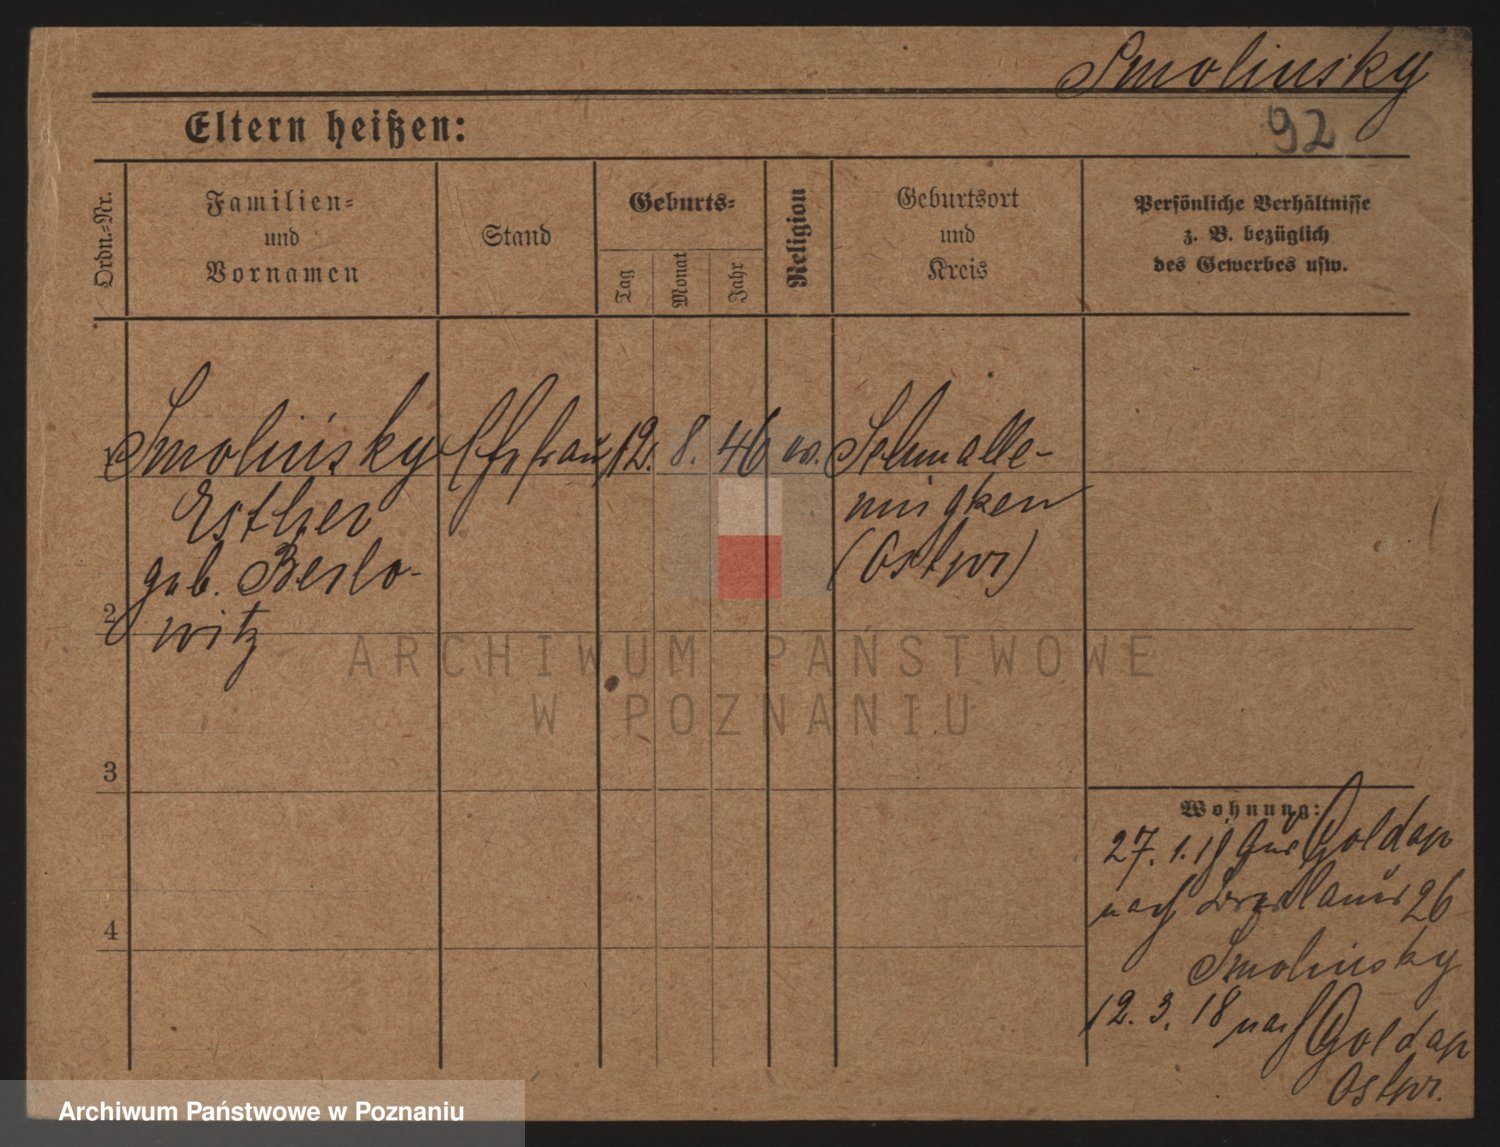 Smolinsky
92
Eltern heißen:
Ordn.-Nr.
Familien-
und
Vornamen
Stand
Geburts-
Tag
Monat
Jahr
Religion
Geburtsort
und
Kreis
Persönliche Verhältnisse
z. B. bezüglich
des Gewerbes usw.
1 Smolinsky Ehefrau 12. 8. 46 Schmalle-
Esther
ningken
geb. Berlo-
(Ostpr)
2
witz
ARCHIWUM PAŃSTWOWE
W POZNANIU
3
Wohnung:
27. 1. 18 aus Goldap
4
nach Breslauer 26
Smolinsky
12. 3. 18 nach Goldap
Ostpr.
Archiwum Państwowe w Poznaniu